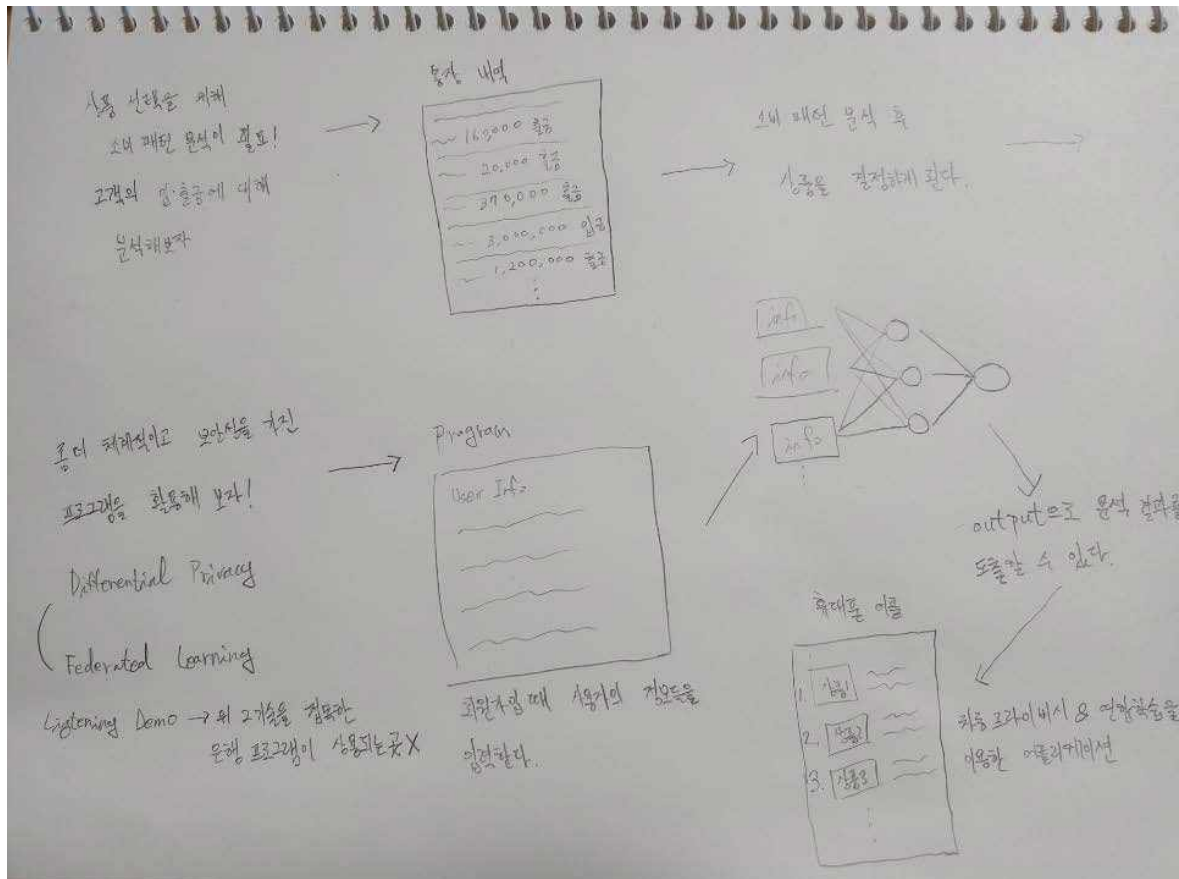 상품 선택을 위해
소비 패턴 분석이 필요!
고객의 입·출금에 대해
분석해보자
통장 내역
160,000 출금
20,000 출금
370,000 출금
3,000,000 입금
1,200,000 출금
소비 패턴 분석 후
상품을 결정하게 된다.
좀 더 체계적이고 보안성을 갖춘
프로그램을 활용해 보자!
Differential Privacy
Federated Learning
Listening Demo → 위 2기술을 접목한
은행 프로그램이 상용되는 곳 X
Program
User Info
회원가입 때 사용자의 정보들을
입력한다.
info
info
info
output으로 분석 결과를
도출할 수 있다.
휴대폰 어플
1. 상품1
2. 상품2
3. 상품3
차등 프라이버시 & 연합학습을
이용한 어플리케이션